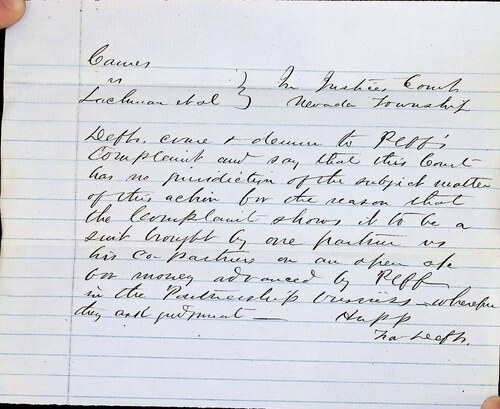 vs } In Justices Court
Lachman et al } Nevada Township
Defts. come & demur to Plff's
Complaint and say that this Court
has no jurisdiction of the subject matter
of this action for the reason that
the Complaint shows it to be a
suit brought by one partner vs
his co partners on an open
for money advanced by Plff
in the Partnership business — wherefore
they ask judgment —
For Defts.